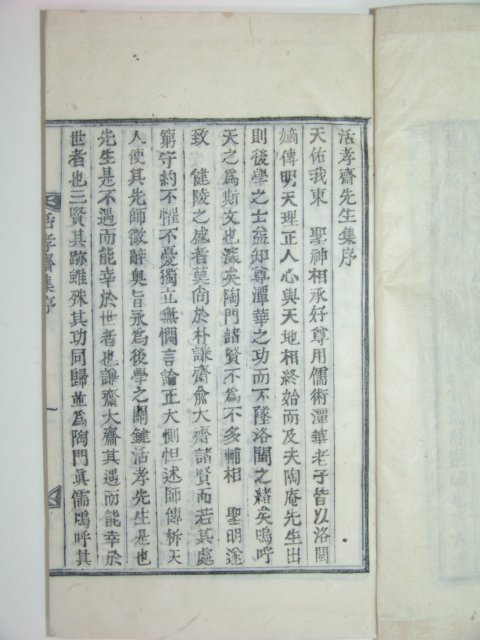 活孝齋先生集序
天佑我東　聖神相承好尊用儒術潭華老子皆以洛閩
嫡傳明天理正人心與天地相終始而及夫陶庵先生出
則後學之士益知尊潭華之功而不墜洛閩之緖矣嗚呼
天之爲斯文也深矣陶門諸賢不爲不多輔相　聖明遂
致　健陵之盛者莫尙於朴謙齋兪大齋諸賢而若其處
窮守約不懼不憂獨立無憫言論正大惻怛述師傳斬天
人使其先師微辭奧旨永爲後學之關鍵活孝先生是也
先生是不遇而能幸於世者也謙齋大齋其遇而能幸於
世者也三賢其跡雖殊其功同歸並爲陶門眞儒嗚呼其
活孝齋集序　一